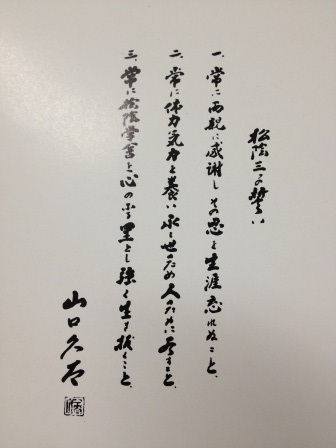 松蔭三つの誓い
一、常に両親に感謝しその恩を生涯忘れぬこと、
二、常に体力気力を養い永く世のため人のために尽すこと、
三、常に松蔭学舎を心のふる里とし強く生き抜くこと、
山口久